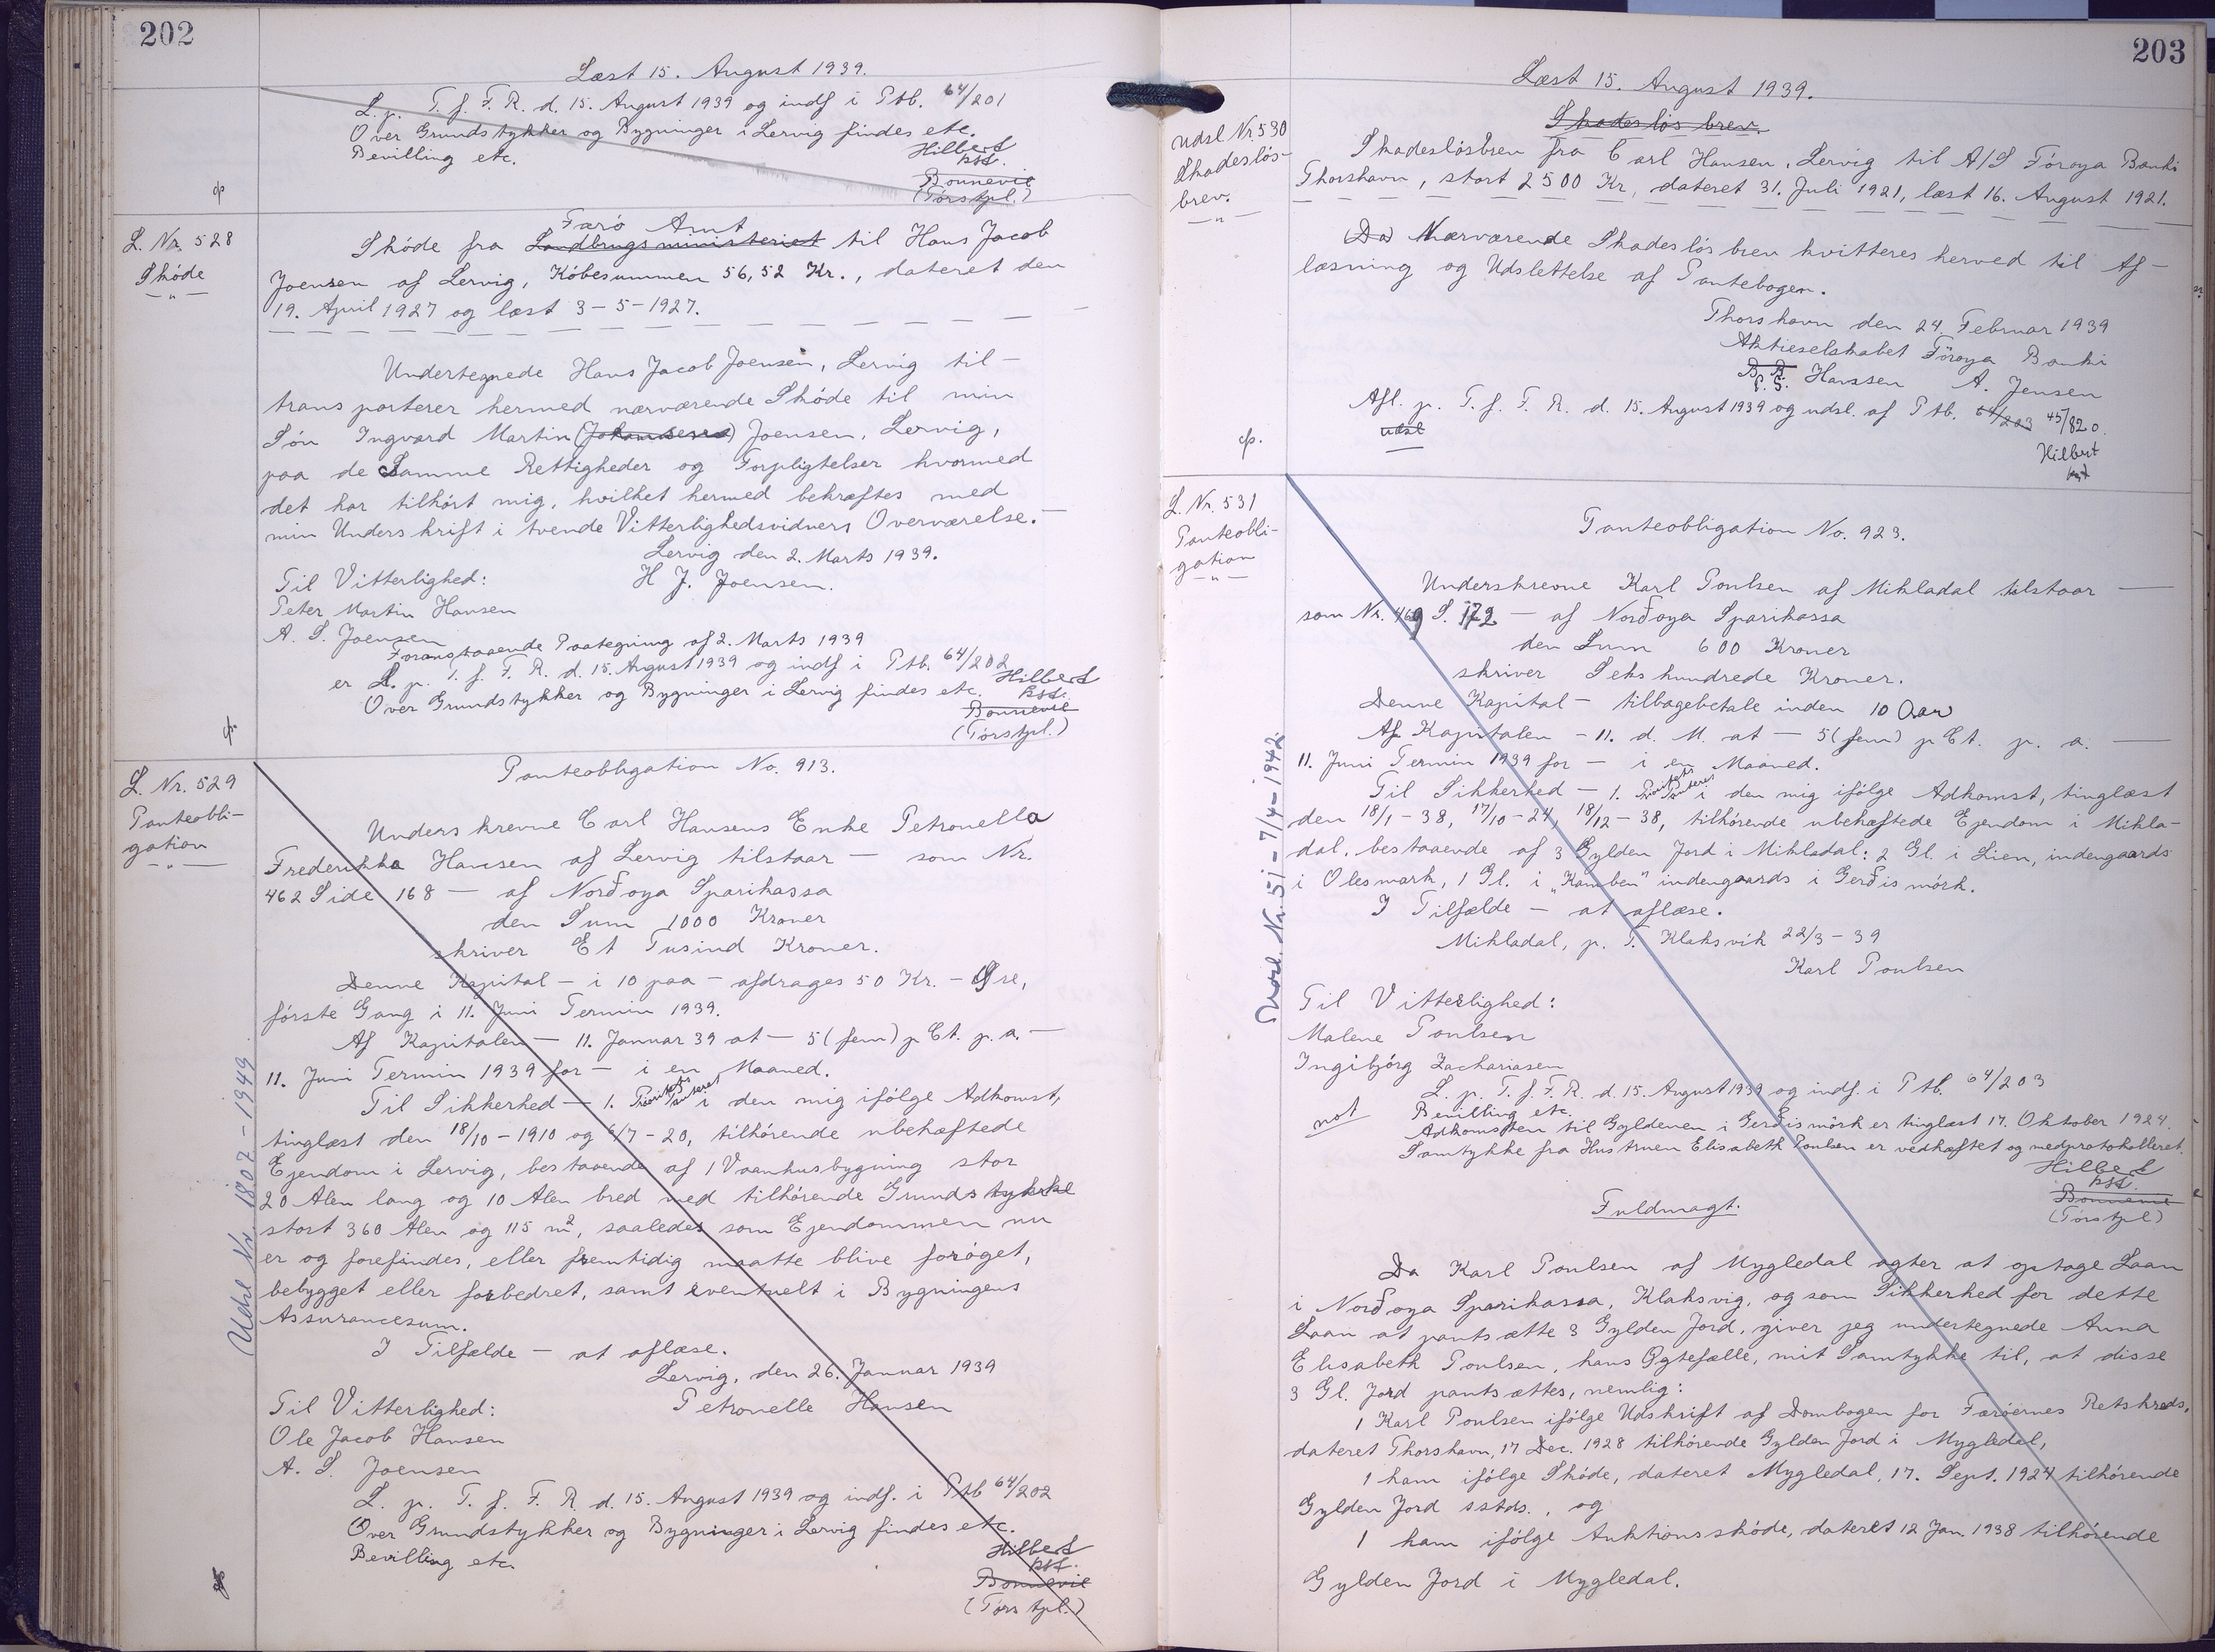 202
Læst 15. August 1939.
L. p. T. f. F. R. d. 15. August 1939 og indf i Ptb. 64/201
Over Grundstykker og Bygninger i Lervig findes etc.
Bevilling etc.
Hilbert
kst.
Bonnevie
(Torstpl.)
L. Nr. 528
Skøde
Færø Amt
Skøde fra Landbrugsministeriet til Hans Jacob
Joensen af Lervig, Købesummen 56,52 Kr., dateret den
19. April 1927 og læst 3-5-1927.
Undertegnede Hans Jacob Joensen, Lervig til-
transporterer hermed nærværende Skøde til min
Søn Ingvard Martin (Johansens) Joensen, Lervig,
paa de Samme Rettigheder og Forpligtelser hvormed
det har tilhørt mig, hvilket hermed bekræftes med
min Underskrift i tvende Vitterlighedsvidners Overværelse.
Lervig den 2. Marts 1939.
Til Vitterlighed:
H J. Joensen.
Peter Martin Hansen
A. S. Joensen
Foranstaaende Paategning af 2. Marts 1939
er L. p. T. f. F. R. d. 15. August 1939 og indf i Ptb. 64/202
Over Grundstykker og Bygninger i Lervig findes etc.
Hilbert
kst.
Bonnevie
(Torstpl.)
L. Nr. 529
Panteobli-
gation
Panteobligation No. 913.
Underskrevne Carl Hansens Enke Petronella
Frederikka Hansen af Lervig tilstaar — som Nr.
462 Side 168 — af Norðoya Sparikassa
den Sum 1000 Kroner
skriver Et Tusind Kroner.
Denne Kapital — i 10 paa — afdrages 50 Kr. — Øre,
første Gang i 11. Juni Termin 1939.
Af Kapitalen — 11. Januar 39 at — 5 (fem) p Ct. p. a. —
11. Juni Termin 1939 for — i en Maaned.
Til Sikkerhed — 1. Prioritets Panteret i den mig ifølge Adkomst,
tinglæst den 18/10-1910 og 6/7-20, tilhørende ubehæftede
Ejendom i Lervig, bestaaende af 1 Vaanhusbygning stor
20 Alen lang og 10 Alen bred med tilhørende Grundstykke
stort 360 Alen og 115 m², saaledes som Ejendommen nu
er og forefindes, eller fremtidig maatte blive forøget,
bebygget eller forbedret, samt eventuelt i Bygningens
Assurancesum.
I Tilfælde — at aflæse.
Lervig, den 26. Januar 1939
Til Vitterlighed:
Petronelle Hansen
Ole Jacob Hansen
A. S. Joensen
L. p. T. f. F. R. d. 15. August 1939 og indf. i Ptb 64/202
Over Grundstykker og Bygninger i Lervig findes etc.
Bevilling etc.
Hilbert
kst.
Bonnevie
(Torstpl.)
Udsl Nr. 1807-1949.
203
Læst 15. August 1939.
Skadesløs brev.
Udsl Nr 530
Skadesløs-
brev.
Skadesløsbrev fra Carl Hansen, Lervig til A/S Føroya Banki
Thorshavn, stort 2500 Kr, dateret 31. Juli 1921, læst 16. August 1921.
(Da) Nærværende Skadesløsbrev kvitteres herved til Af-
læsning og Udslettelse af Pantebogen.
Thorshavn den 24. Februar 1939
Aktieselskabet Föroya Banki
P. S. Hanssen A. Jensen
Afl. p. T. f. F. R. d. 15. August 1939 og udsl. af Ptb. 64/203 45/820.
udsl
Hilbert
kst
L. Nr. 531
Panteobli-
gation
Panteobligation No. 923.
Underskrevne Karl Poulsen af Mikladal tilstaar —
som Nr. 469 S. 172 — af Norðoya Sparikassa
den Sum 600 Kroner
skriver Sekshundrede Kroner.
Denne Kapital — tilbagebetale inden 10 Aar
Af Kapitalen — 11. d. M. at — 5 (fem) p Ct. p. a. —
11. Juni Termin 1939 for — i en Maaned.
Til Sikkerhed — 1. Prioritets Panteret i den mig ifølge Adkomst, tinglæst
den 18/1-38, 17/10-24, 18/12-38, tilhørende ubehæftede Ejendom i Mikla-
dal, bestaaende af 3 Gylden Jord i Mikladal: 2 Gl. i Lien, indengaards
i Olesmark, 1 Gl. i „Kamben" indengaards i Gerðismørk.
I Tilfælde — at aflæse.
Mikladal, p. T. Klaksvik 22/3-39
Karl Poulsen
Til Vitterlighed:
Malene Poulsen
Ingibjørg Zachariasen
L. p. T. f. F. R. d. 15. August 1939 og indf. i Ptb. 64/203
not
Bevilling etc.
Adkomsten til Gyldenen i Gerðismörk er tinglæst 17. Oktober 1924.
Samtykke fra Hustruen Elisabeth Poulsen er vedhæftet og medprotokolleret.
Hilbert
kst.
Bonnevie
(Torstpl)
Fuldmagt.
Da Karl Poulsen af Mygledal agter at optage Laan
i Norðoya Sparikassa, Klaksvig, og som Sikkerhed for dette
Laan at pantsætte 3 Gylden Jord, giver jeg undertegnede Anna
Elisabeth Poulsen, hans Ægtefælle, mit Samtykke til, at disse
3 Gl. Jord pantsættes, nemlig:
1 Karl Poulsen ifølge Udskrift af Dombogen for Færøernes Retskreds,
dateret Thorshavn, 17 Dec. 1928 tilhørende Gylden Jord i Mygledal,
1 ham ifølge Skøde, dateret Mygledal, 17. Sept. 1924 tilhørende
Gylden Jord sstds., og
1 ham ifølge Auktionsskøde, dateret 12 Jan. 1938 tilhørende
Gylden Jord i Mygledal.
Udsl. Nr. 51-7/4-1942